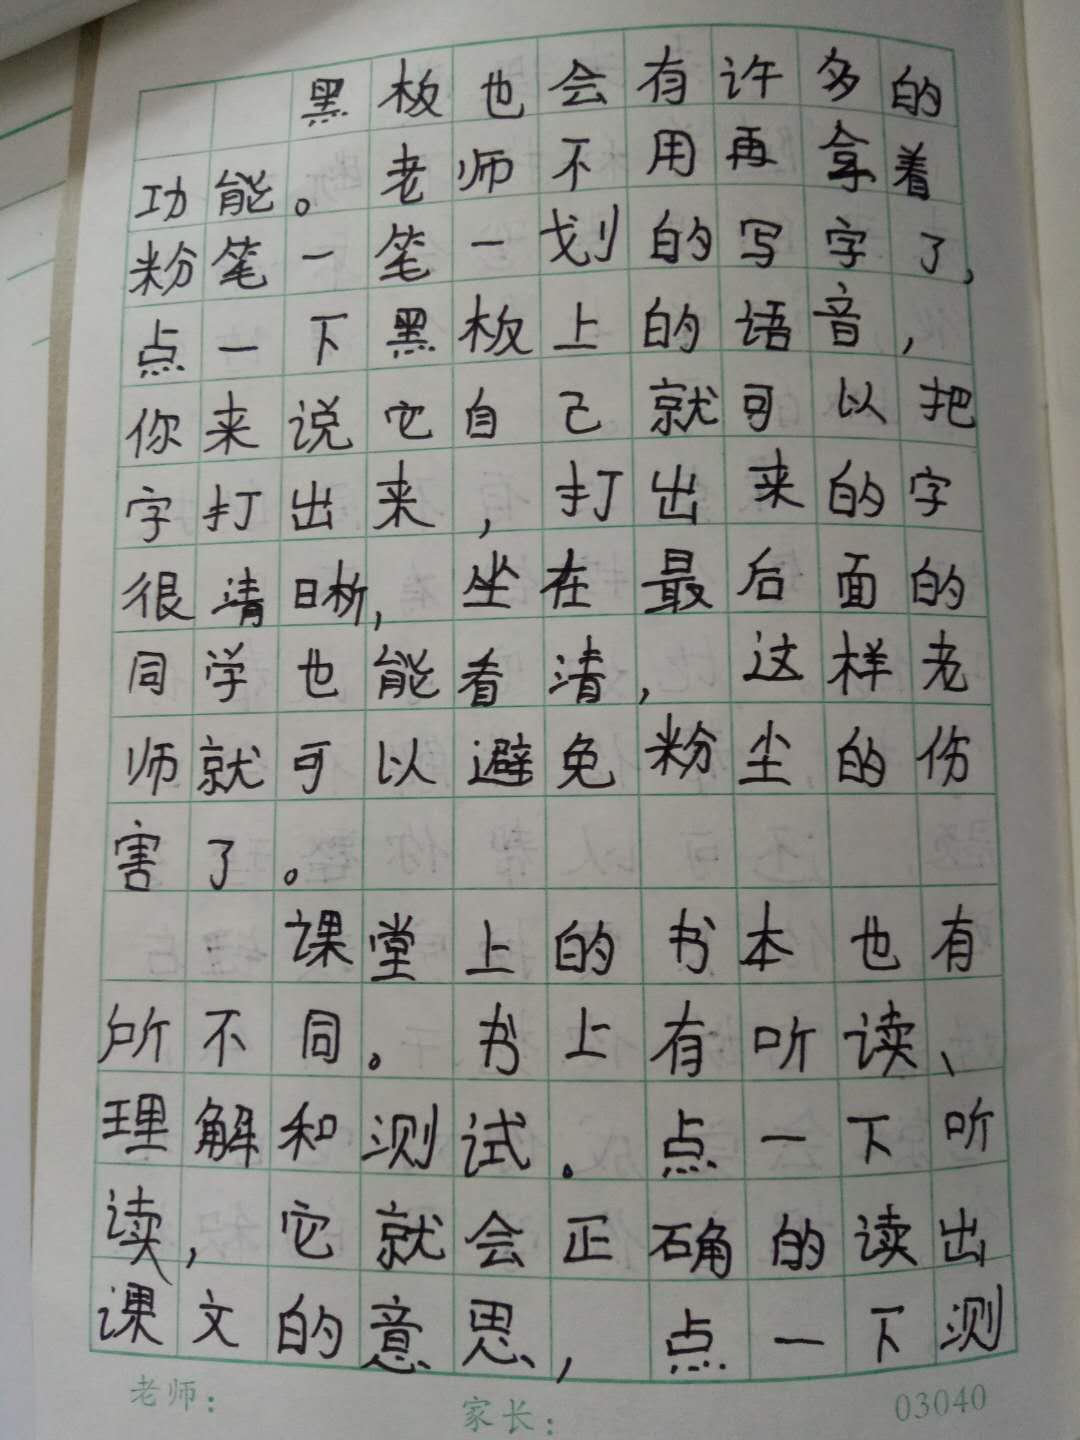 黑板也会有许多的
功能。老师不用再拿着
粉笔一笔一划的写字了,
点一下黑板上的语音,
你来说它自己就可以把
字打出来,打出来的字
很清晰,坐在最后面的
同学也能看清,这样老
师就可以避免粉尘的伤
害了。
课堂上的书本也有
所不同。书上有听读、
理解和测试。点一下听
读,它就会正确的读出
课文的意思,点一下测
老师: 家长: 03040